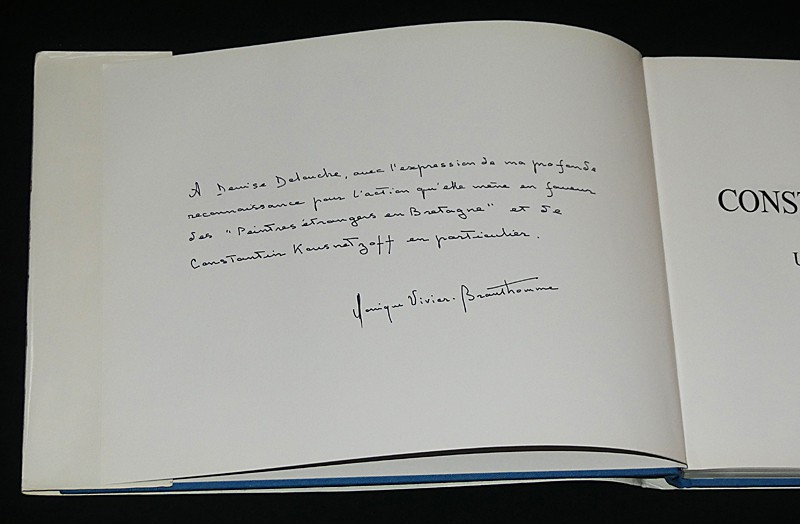 A Denise Delouche, avec l'expression de ma profonde
reconnaissance pour l'action qu'elle mène en faveur
des "Peintres étrangers en Bretagne" et de
Constantin Kousnetzoff en particulier.
Monique Vivier-Brauthomme
CONST
U